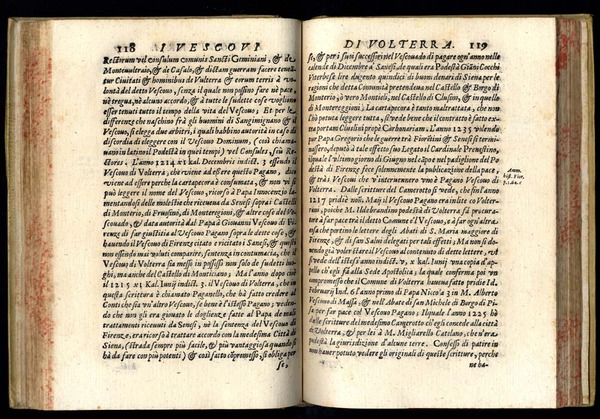 118 I VESCOVI
Rectorum vel consulum comunis Sancti Geminiani, & de
Montevultraio, & de Casule, & dictam guerram facere tenea
tur Civitati & hominibus de Volterra & eorum terris à vo
lontà del detto Vescovo, senza il quale non possino far nè pace,
nè tregua, nè alcuno accordo, & à tutte le sudette cose vogliano
esser tenuti tutto il tempo della vita del Vescovo; Et per le
differenze che naschino frà gli huomini di Sangimignano & il
Vescovo, si elegga due arbitri, i quali habbino autorità in caso di
discordia di eleggere con il Vescovo Dominum, (così chiama-
vano in latino il Podestà in quei tempi) vel Consules, sin Rec
tores. L'anno 1214 xi kal. Decembris indict. 3 essendo il
Vescovo di Volterra, che viene ad essere questo Pagano, dico
viene ad essere perche la cartapecora è consumata, & non vi si
può leggere il nome del Vescovo, ricorse à Papa Innocenzo la-
mentandosi delle molestie che riceveva da Senesi sopra i Castelli
di Monterio, di Frusini, di Montergioni, & altre cose del Ve-
scovado, & data autorità dal Papa à Giovanni Vescovo di Fi-
renze di far giustitia al Vescovo Pagano sopra le dette cose, &
havendo il Vescovo di Firenze citato e ricitato i Sanesi, & questi
non essendo mai voluti comparire, sentenza in contumacia, che il
Vescovo di Volterra sia messo in possesso non solo de sudetti luo-
ghi, ma anche del Castello di Monticiano; Ma l'anno dopo cioè
il 1215 xi Kal. Iunij indict. 3. il Vescovo di Volterra, che in
questa scrittura è chiamato Paganello, che hà fatto credere al
Conti che sia un'altro Vescovo, se bene è l'istesso Pagano; veden-
do che non gli era giovato le doglienze fatte al Papa de mali
trattamenti ricevuti da Senesi, nè la sentenza del Vescovo di
Firenze, era ricorso à trattare accordo con la medesima Città di
Siena, (strada sempre più facile, & più vantaggiosa quando si
hà da fare con più potenti) & così fatto cōpromesso, si obliga per
se,
DI VOLTERRA. 119
se, & per i suoi successori nel Vescovado di pagare ogn'anno nelle
calende di Dicembre à Sanesi, de quali era Podestà Giāni Cocchi
Viterbese lire dugento quindici di buoni denari di Siena per le
ragioni che detta Comunità pretendeva nel Castello & Borgo di
Monterio, ò vero Montieri, nel Castello di Clusini, & in quello
di Montereggioni; La cartapecora è tanto maltrattata, che non
si può leggere tutta bene, si vede bene che il contratto è fatto ex
tra portam Clusini propè Carbonariam. L'anno 1235 volendo
per Papa Gregorio che le guerre trà Fiorētini & Senesi si termi-
nassero, deputò à tale effetto suo Legato il Cardinale Prenestino,
il quale l'ultimo giorno di Giugno nel cāpo e nel padiglione del Po
destà di Firenze fece solennemente la publicazione della pace,
& trà i Vescovi che v'intervennero vno è Pagano Vescovo di
Volterra. Dalle scritture del Camerotto si vede, che sin l'anno
1217 pridie non. Maij il Vescovo Pagano era in lite co Volter-
rani, poiche M. Ildebrandino podestà di Volterra fà procura-
tore à far pace trà il Comune di Volterra e il Vescovo, e à far ogn'altra co
sa che portino le lettere degli Abati di S. Maria maggiore di
Firenze, & di san Salvi delegati per tali effetti; Ma non si do-
vendo già voler stare il Vescovo al contenuto di dette lettere, si
vede sotto l'istess'anno indict. v. x kal. Iunij una copia d'ap-
pello ch'egli fà alla Sede Apostolica; la quale conferma poi un
compromesso che il Comune di Volterra haveva fatto pridie Id.
Februarij Ind. 6 l'anno primo di Papa Nicola 3 in M. Alberto
Vescovo di Massa, & nell'Abate di san Michele di Borgo di Pi-
sa per far pace col Vescovo Pagano; Il quale l'anno 1225 hà
dalle scritture del medesimo Camerotto ch'egli concede alla città
di Volterra, & per lei à M. Migliarello Catelano, che n'era
podestà la giurisdizione d'alcune terre. Confesso di patire in
non haver potuto vedere gli originali di queste scritture, perche
ne ha-
Amm.